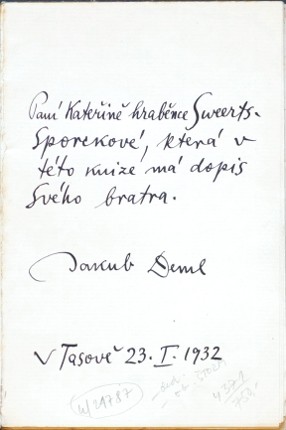 Paní Kateřině hraběnce Sweerts-
Sporckové, která v
této knize má dopis
svého bratra.
Jakub Deml
V Tasově 23. I. 1932
W/24787